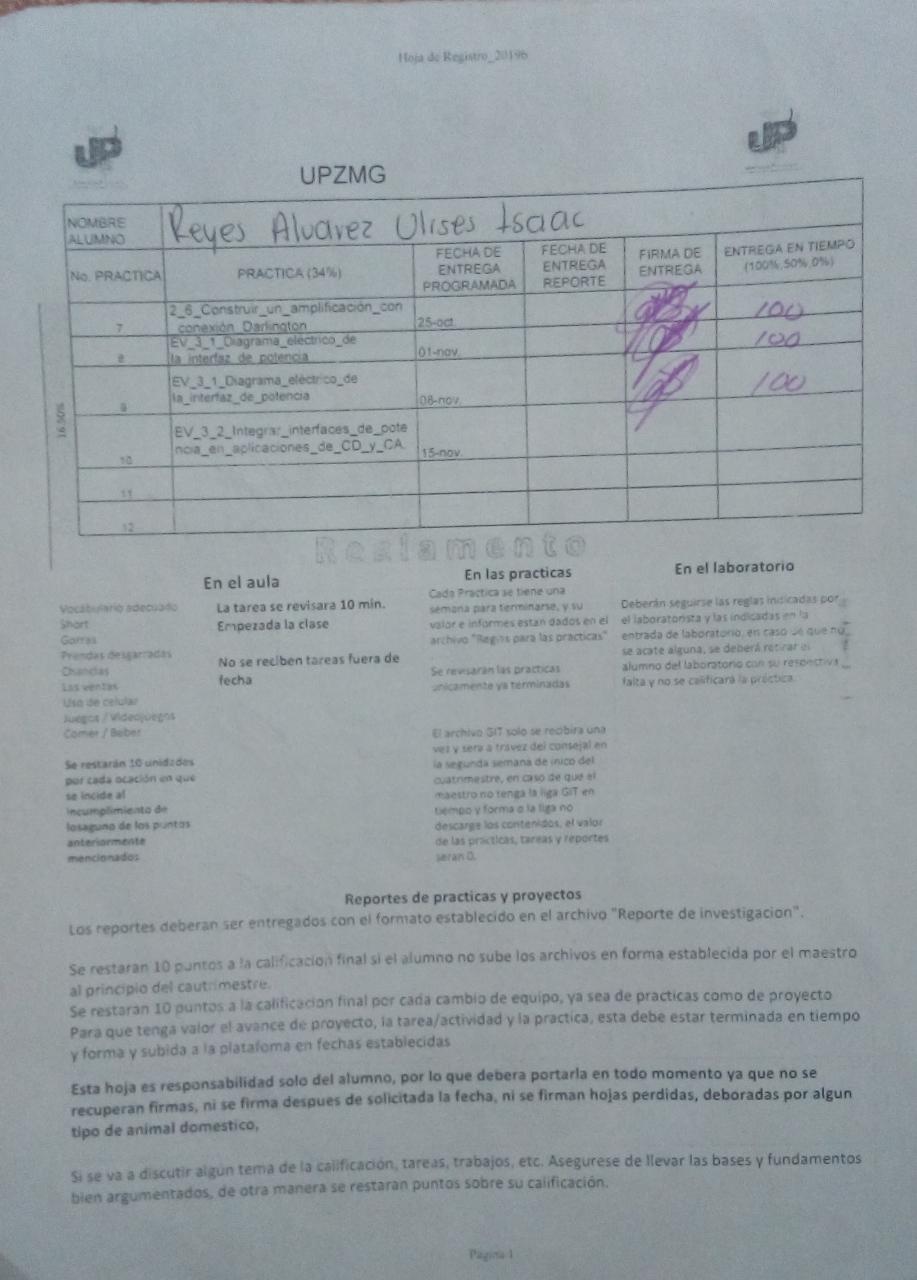 Hoja de Registro_2019b
UP
UP
UPZMG
NOMBRE
ALUMNO
Reyes Alvarez Ulises Isaac
No. PRACTICA
PRACTICA (34%)
FECHA DE
ENTREGA
PROGRAMADA
FECHA DE
ENTREGA
REPORTE
FIRMA DE
ENTREGA
ENTREGA EN TIEMPO
(100%,50%,0%)
7
2_6_Construir_un_amplificación_con
_conexión_Darlington
25-oct.
100
8
EV_3_1_Diagrama_eléctrico_de
la_interfaz_de_potencia
01-nov.
100
9
EV_3_1_Diagrama_eléctrico_de
la_interfaz_de_potencia
08-nov.
100
10
EV_3_2_Integrar_interfaces_de_pote
ncia_en_aplicaciones_de_CD_y_CA.
15-nov.
11
12
Reglamento
En el aula
Vocabulario adecuado
Short
Gorras
Prendas desgarradas
Chanclas
Las ventas
Uso de celular
Juegos / Videojuegos
Comer / Beber
Se restarán 10 unidades
por cada ocación en que
se incide al
incumplimiento de
losaguno de los puntos
anteriormente
mencionados
La tarea se revisara 10 min.
Empezada la clase
No se reciben tareas fuera de
fecha
En las practicas
Cada Practica se tiene una
semana para terminarse, y su
valor e informes estan dados en el
archivo "Reglas para las practicas"
Se revisaran las practicas
unicamente ya terminadas
El archivo GIT solo se recibira una
vez y sera a travez del consejal en
la segunda semana de inico del
cuatrimestre, en caso de que el
maestro no tenga la liga GIT en
tiempo y forma o la liga no
descarge los contenidos, el valor
de las practicas, tareas y reportes
seran 0.
En el laboratorio
Deberán seguirse las reglas indicadas por
el laboratorista y las indicadas en la
entrada de laboratorio, en caso de que no
se acate alguna, se deberá retirar el
alumno del laboratorio con su respectiva
falta y no se calificará la práctica.
Reportes de practicas y proyectos
Los reportes deberan ser entregados con el formato establecido en el archivo "Reporte de investigacion".
Se restaran 10 puntos a la calificacion final si el alumno no sube los archivos en forma establecida por el maestro
al principio del cautrimestre.
Se restaran 10 puntos a la calificacion final por cada cambio de equipo, ya sea de practicas como de proyecto
Para que tenga valor el avance de proyecto, la tarea/actividad y la practica, esta debe estar terminada en tiempo
y forma y subida a la platafoma en fechas establecidas
Esta hoja es responsabilidad solo del alumno, por lo que debera portarla en todo momento ya que no se
recuperan firmas, ni se firma despues de solicitada la fecha, ni se firman hojas perdidas, deboradas por algun
tipo de animal domestico,
Si se va a discutir algun tema de la calificación, tareas, trabajos, etc. Asegurese de llevar las bases y fundamentos
bien argumentados, de otra manera se restaran puntos sobre su calificación.
Pagina 1